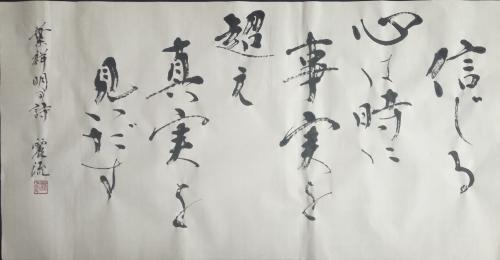 信じる
心は時に
事実を
超え
真実を
見いだす
葉祥明の詩 麗流